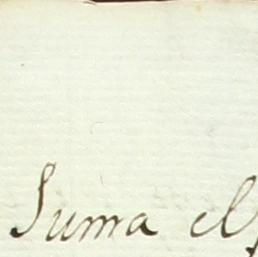 Suma el